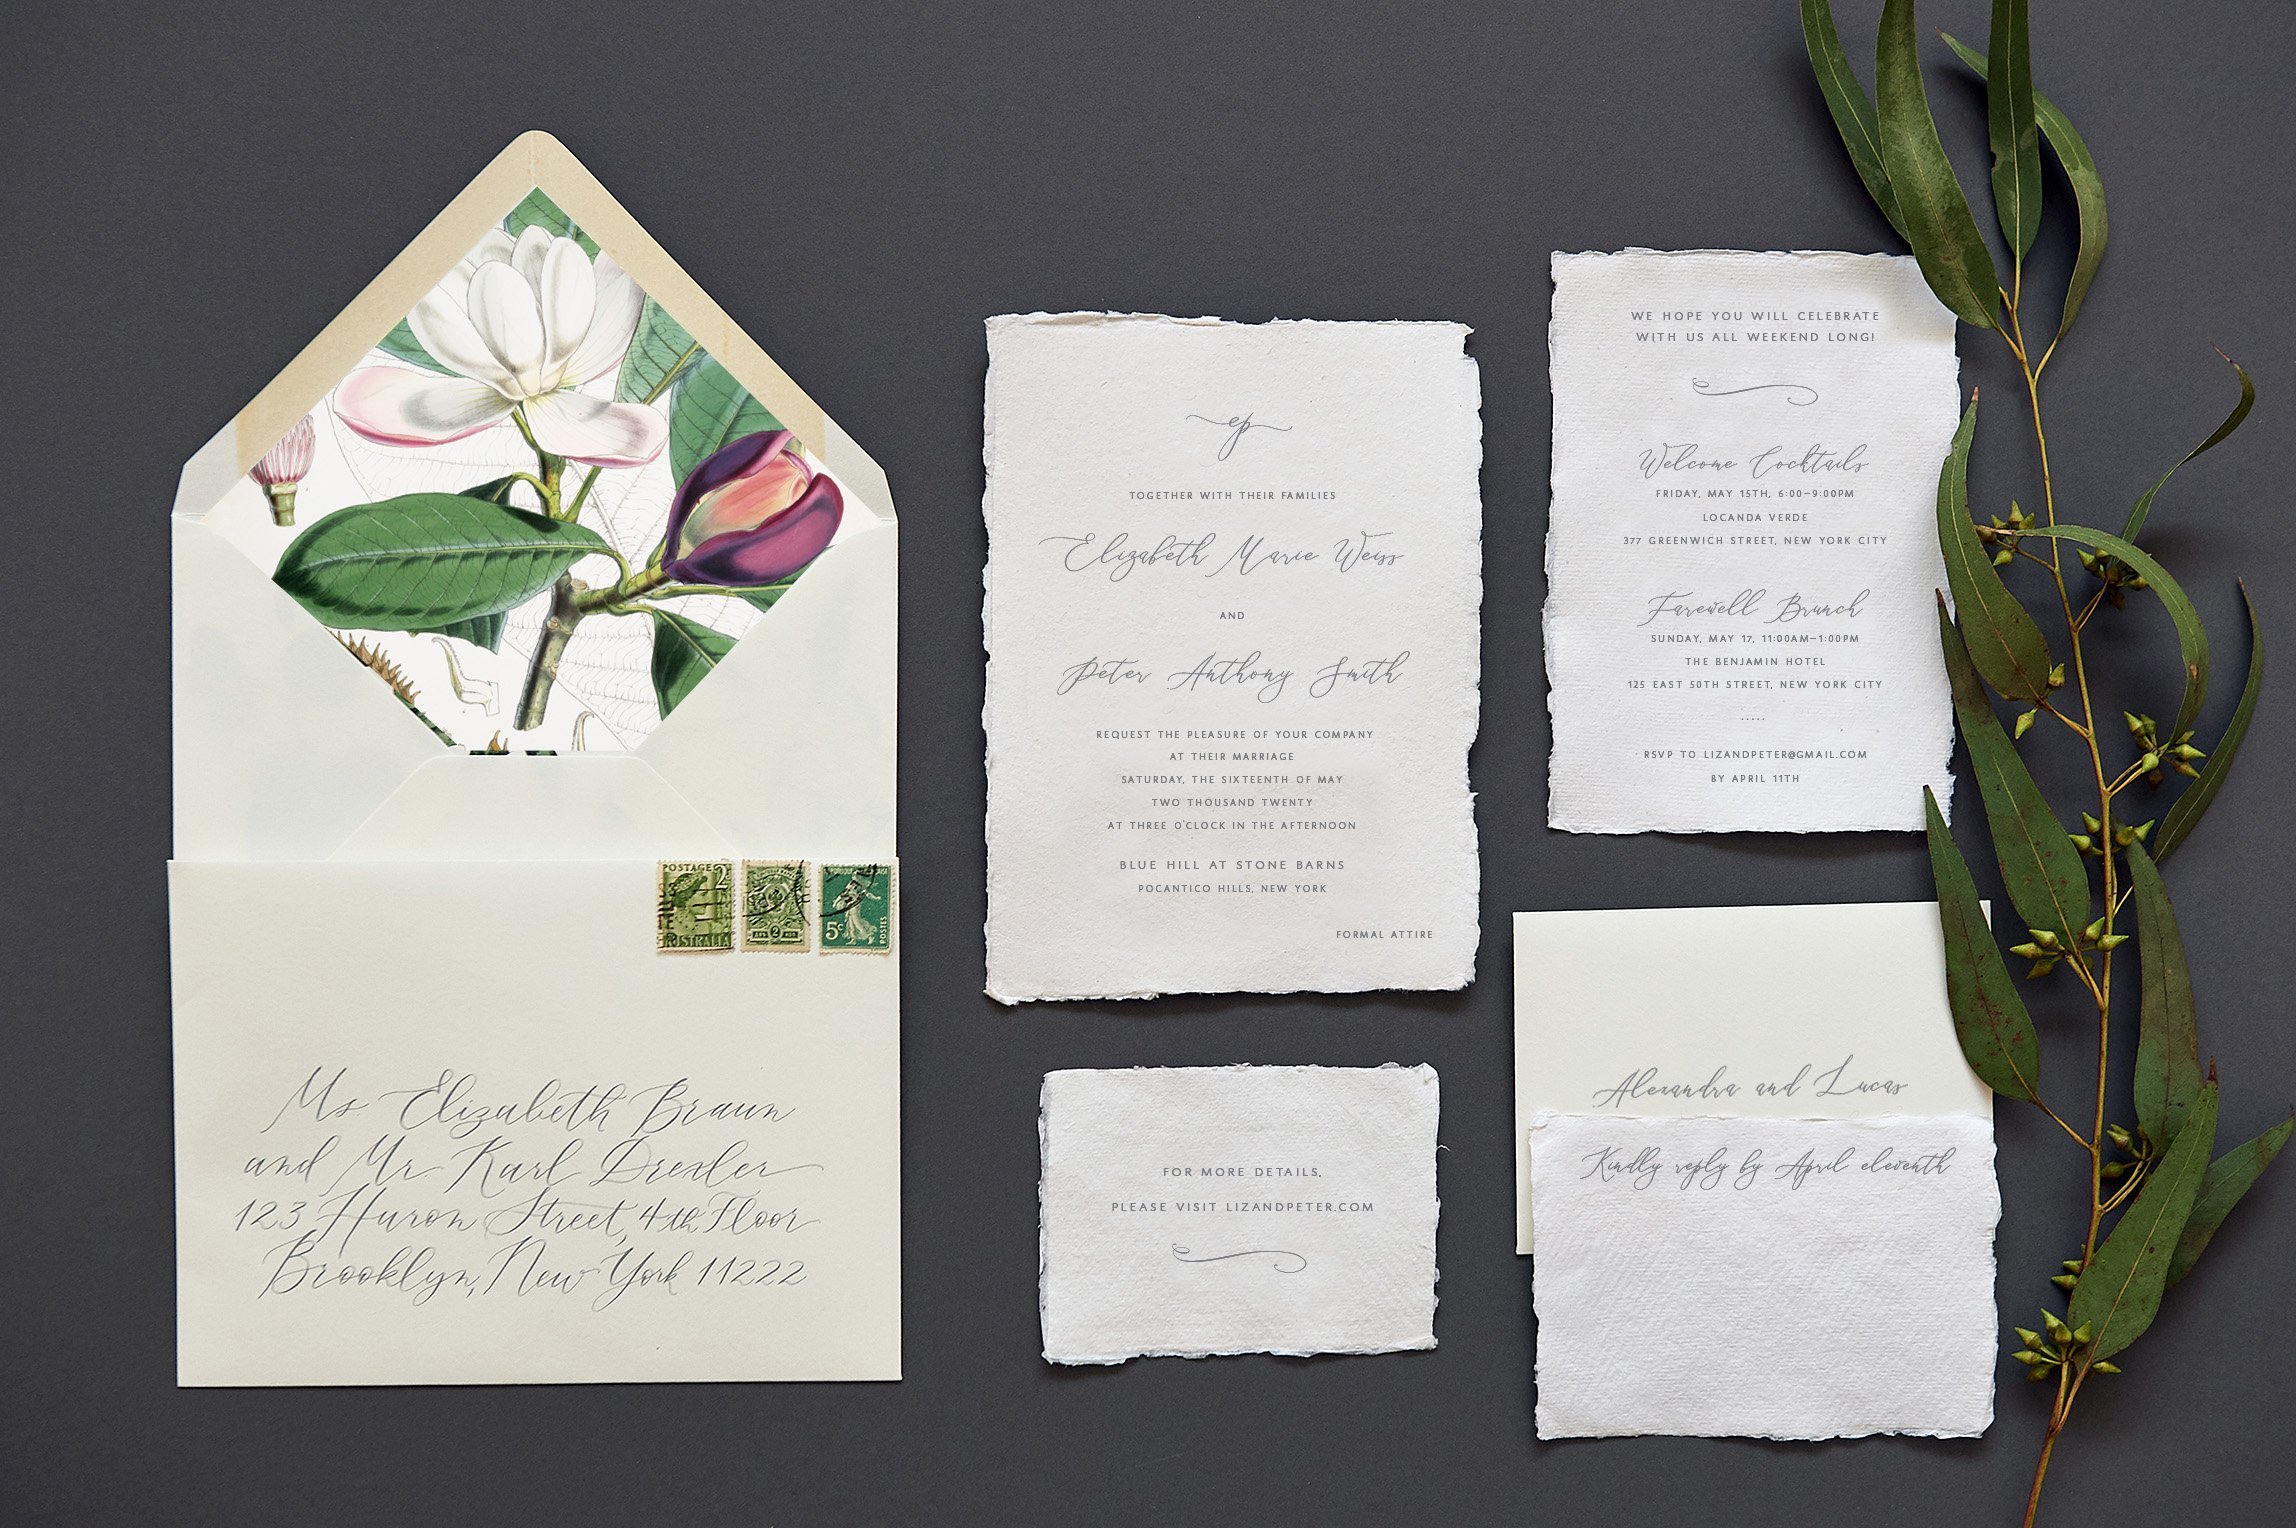 POSTAGE 2
AUSTRALIA
2
5c
POSTES
Ms Elizabeth Braun
and Mr. Karl Drexler
123 Huron Street, 4th Floor
Brooklyn, New York 11222
ep
TOGETHER WITH THEIR FAMILIES
Elizabeth Marie Weiss
AND
Peter Anthony Smith
REQUEST THE PLEASURE OF YOUR COMPANY
AT THEIR MARRIAGE
SATURDAY, THE SIXTEENTH OF MAY
TWO THOUSAND TWENTY
AT THREE O'CLOCK IN THE AFTERNOON
BLUE HILL AT STONE BARNS
POCANTICO HILLS, NEW YORK
FORMAL ATTIRE
FOR MORE DETAILS,
PLEASE VISIT LIZANDPETER.COM
WE HOPE YOU WILL CELEBRATE
WITH US ALL WEEKEND LONG!
Welcome Cocktails
FRIDAY, MAY 15TH, 6:00–9:00PM
LOCANDA VERDE
377 GREENWICH STREET, NEW YORK CITY
Farewell Brunch
SUNDAY, MAY 17, 11:00AM–1:00PM
THE BENJAMIN HOTEL
125 EAST 50TH STREET, NEW YORK CITY
.....
RSVP TO LIZANDPETER@GMAIL.COM
BY APRIL 11TH
Alexandra and Lucas
Kindly reply by April eleventh